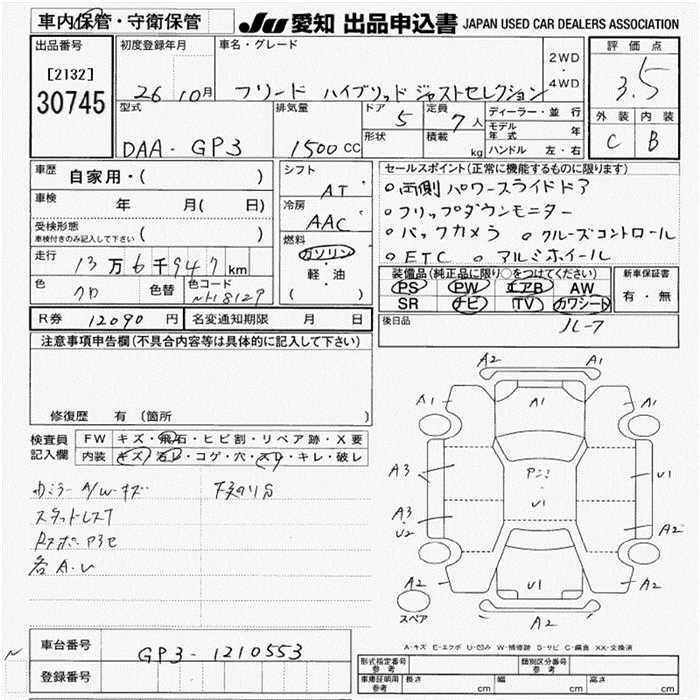 車内保管・守衛保管 JU 愛知 出品申込書 JAPAN USED CAR DEALERS ASSOCIATION
出品番号 [2132] 30745
初度登録年月 26 10月
車名・グレード フリード ハイブリッド ジャストセレクション 2WD・4WD
評価点 3.5
外装 内装
C B
型式 DAA-GP3
排気量 1500CC
ドア 5 定員 7人
形状 積載 kg
ディーラー・並行
モデル年式 年
ハンドル 左・右
車歴 自家用・( )
車検 年 月( 日)
受検形態
車検付きのみ記入して下さい ( )
走行 13万6千947km
色 クロ 色替 色コード NH812P
シフト AT
冷房 AAC
燃料 ガソリン
軽・油
( )
セールスポイント(正常に機能するものに限ります)
○両側パワースライドドア
○フリップダウンモニター
○バックカメラ ○クルーズコントロール
○ETC ○アルミホイール
装備品(純正品に限り○をつけてください)
PS PW エアB AW
SR ナビ TV カワシート
新車保証書
有・無
後日品
R券 12090円 名変通知期限 月 日
注意事項申告欄(不具合内容等は具体的に記入して下さい)
修復歴 有(箇所 )
検査員記入欄
FW キズ・飛石・ヒビ割・リペア跡・X要
内装 キズ・汚レ・コゲ・穴・スレ・キレ・破レ
カミラーA/Wキズ
スタッドレス7
各A.U
A2 A1
A1 A1 A1
A3 U1 U1
A3 U2 A2
A2 U1 A2
A2
スペア
A-キズ E-エクボ U-凹み W-補修跡 S-サビ C-腐食 XX-交換済
車台番号 GP3-1210553
登録番号
形式指定番号 参考 類別区分番号 参考
車庫証明用 参考 長さ cm 幅 cm 高さ cm